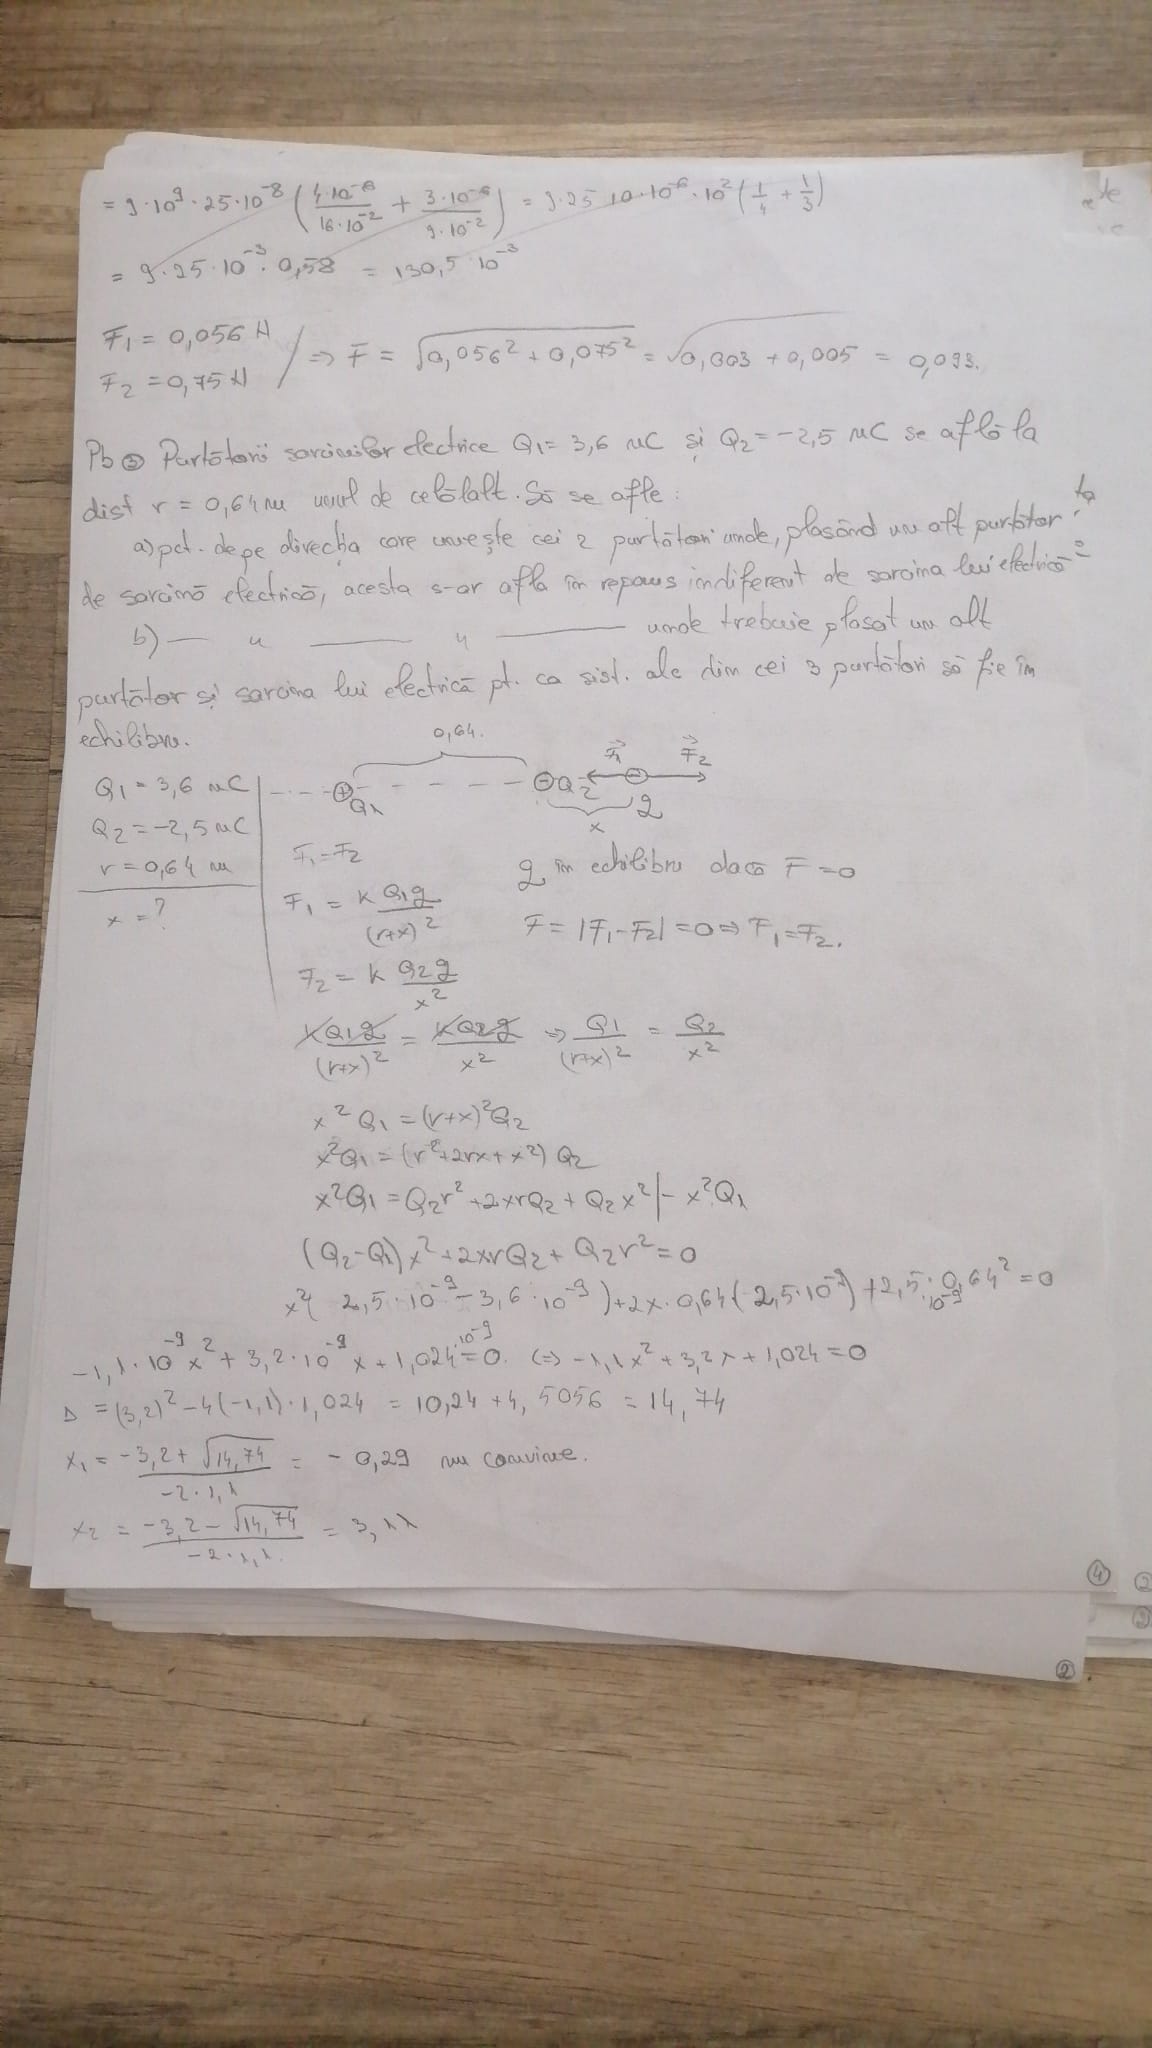 = 9·10⁹·25·10⁻⁸ (4·10⁻⁶/16·10⁻² + 3·10⁻⁶/9·10⁻²) = 9·25·10·10⁻⁶·10² (1/4 + 1/3)
= 9·25·10⁻³·0,58 = 130,5·10⁻³
F₁ = 0,056 N
F₂ = 0,75 N / => F = √(0,056² + 0,075²) = √(0,003 + 0,005) = 0,093.
Pb ③ Purtătorii sarcinilor electrice Q₁ = 3,6 nC și Q₂ = -2,5 nC se află la
dist r = 0,64 m unul de celălalt. Să se afle:
a) pct. de pe direcția care unește cei 2 purtători unde, plasând un alt purtător
de sarcină electrică, acesta s-ar afla în repaus indiferent de sarcina lui electrică
b) — u — u — unde trebuie plasat un alt
purtător și sarcina lui electrică pt. ca sist. alc din cei 3 purtători să fie în
echilibru.
0,64.
Q₁ = 3,6 nC
Q₂ = -2,5 nC
r = 0,64 m
x = ?
⊕ Q₁ ⊖ Q₂ F₁ ⊖ F₂
x q
F₁ = F₂ q în echilibru dacă F = 0
F₁ = k Q₁q/(r+x)² F = |F₁ - F₂| = 0 => F₁ = F₂.
F₂ = k Q₂q/x²
kQ₁q/(r+x)² = kQ₂q/x² => Q₁/(r+x)² = Q₂/x²
x²Q₁ = (r+x)²Q₂
x²Q₁ = (r²+2rx+x²) Q₂
x²Q₁ = Q₂r² + 2xrQ₂ + Q₂x² |- x²Q₁
(Q₂-Q₁)x² + 2xrQ₂ + Q₂r² = 0
x²(2,5·10⁻⁹ - 3,6·10⁻⁹) + 2x·0,64(2,5·10⁻⁹) + 2,5·10⁻⁹·0,64² = 0
-1,1·10⁻⁹x² + 3,2·10⁻⁹x + 1,024·10⁻⁹ = 0. (=) -1,1x² + 3,2x + 1,024 = 0
Δ = (3,2)² - 4(-1,1)·1,024 = 10,24 + 4,5056 = 14,74
x₁ = (-3,2 + √14,74)/(-2·1,1) = -0,29 nu convine.
x₂ = (-3,2 - √14,74)/(-2·1,1) = 3,11
④
②
②